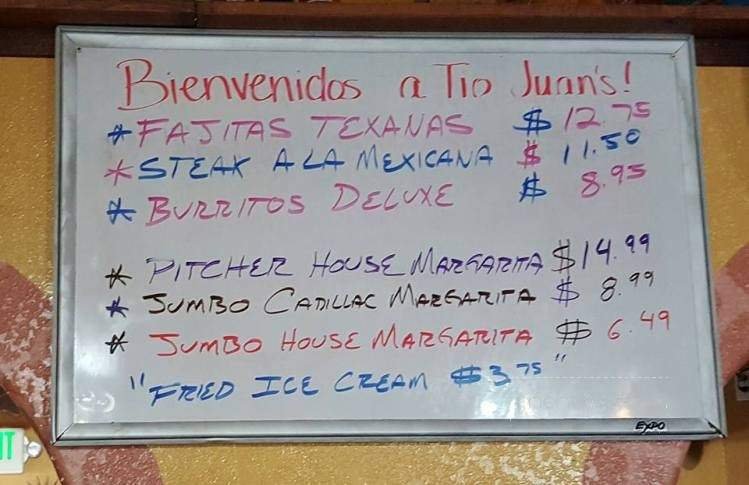 Bienvenidos a Tio Juan's!
* FAJITAS TEXANAS $ 12.75
* STEAK A LA MEXICANA $ 11.50
* BURRITOS DELUXE $ 8.95
* PITCHER HOUSE MARGARITA $14.99
* JUMBO CADILLAC MARGARITA $ 8.99
* JUMBO HOUSE MARGARITA $ 6.49
"FRIED ICE CREAM $3.75"
EXPO
IT